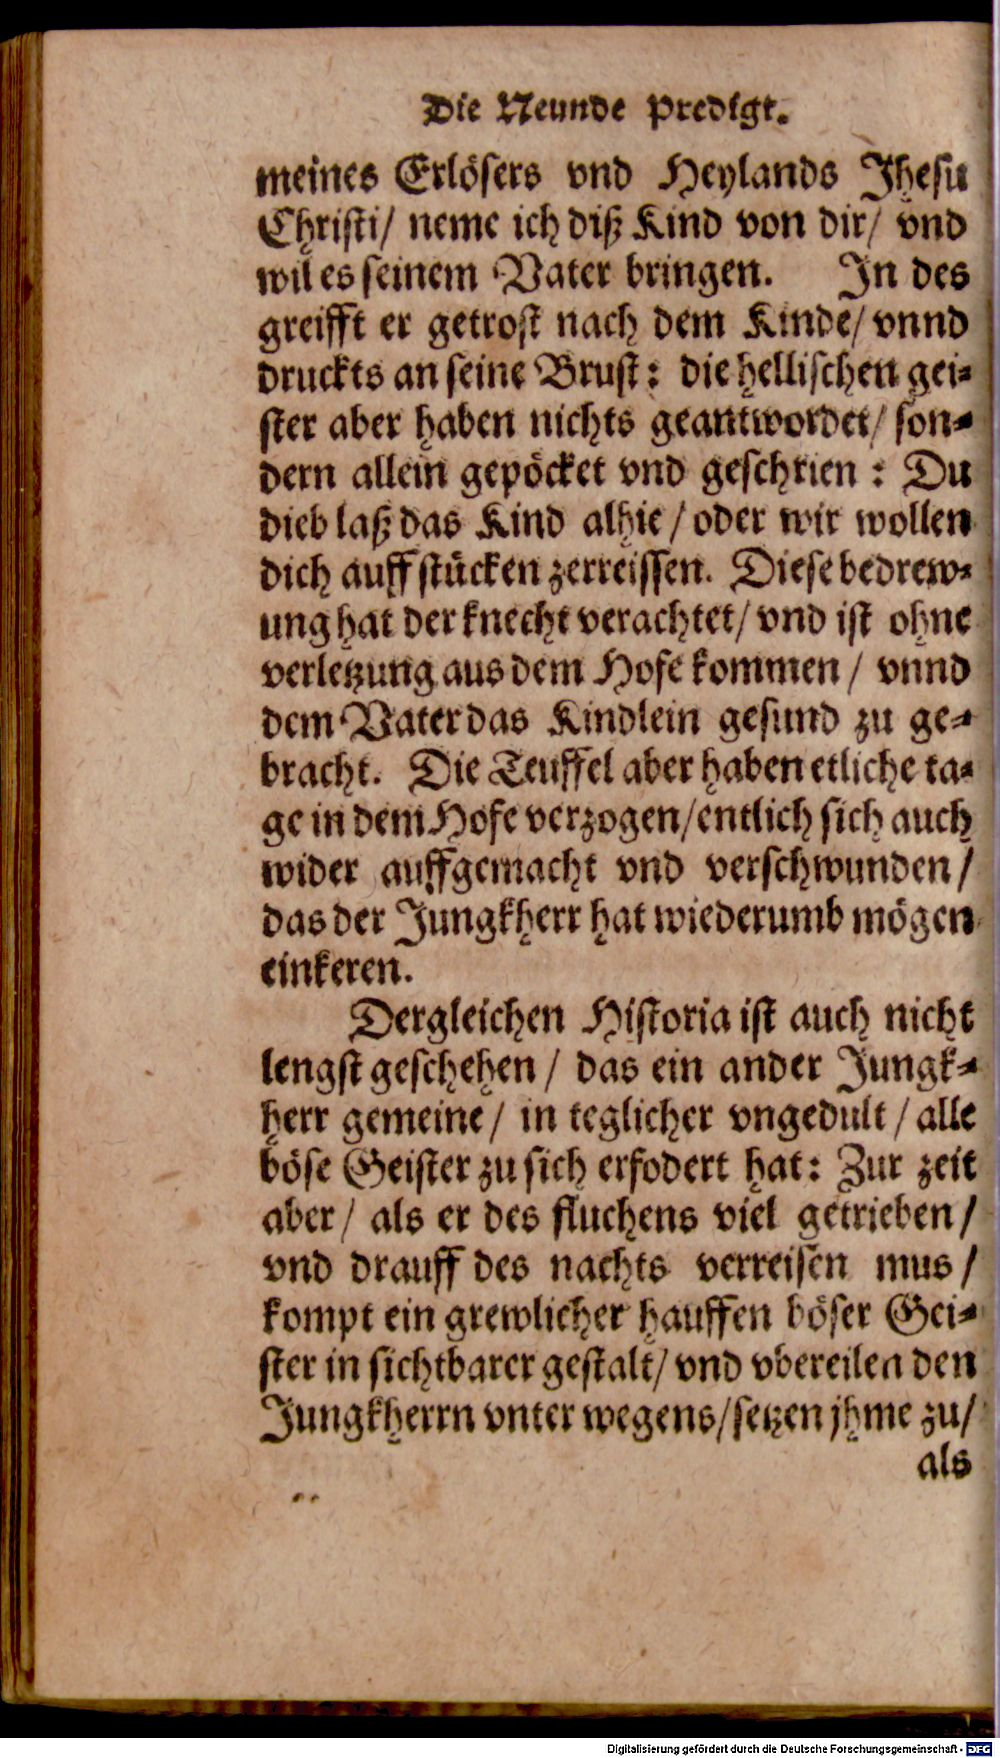 Die Neunde Predigt.
meines Erlösers vnd Heylands Jhesu
Christi/ neme ich diß Kind von dir/ vnd
wil es seinem Vater bringen. In des
greifft er getrost nach dem Kinde/ vnnd
druckts an seine Brust: die hellischen gei-
ster aber haben nichts geantwordet/ son-
dern allein gepöcket vnd geschrien: Du
dieb laß das Kind alhie/ oder wir wollen
dich auff stücken zerreissen. Diese bedrew-
ung hat der knecht verachtet/ vnd ist ohne
verletzung aus dem Hofe kommen/ vnnd
dem Vater das Kindlein gesund zu ge-
bracht. Die Teuffel aber haben etliche ta-
ge in dem Hofe verzogen/ entlich sich auch
wider auffgemacht vnd verschwunden/
das der Jungkherr hat wiederumb mögen
einkeren.
Dergleichen Historia ist auch nicht
lengst geschehen/ das ein ander Jungk-
herr gemeine/ in teglicher vngedult/ alle
böse Geister zu sich erfodert hat: Zur zeit
aber/ als er des fluchens viel getrieben/
vnd drauff des nachts verreisen mus/
kompt ein grewlicher hauffen böser Gei-
ster in sichtbarer gestalt/ vnd vbereilen den
Jungkherrn vnter wegens/ setzen jhme zu/
als
Digitalisierung gefördert durch die Deutsche Forschungsgemeinschaft - DFG